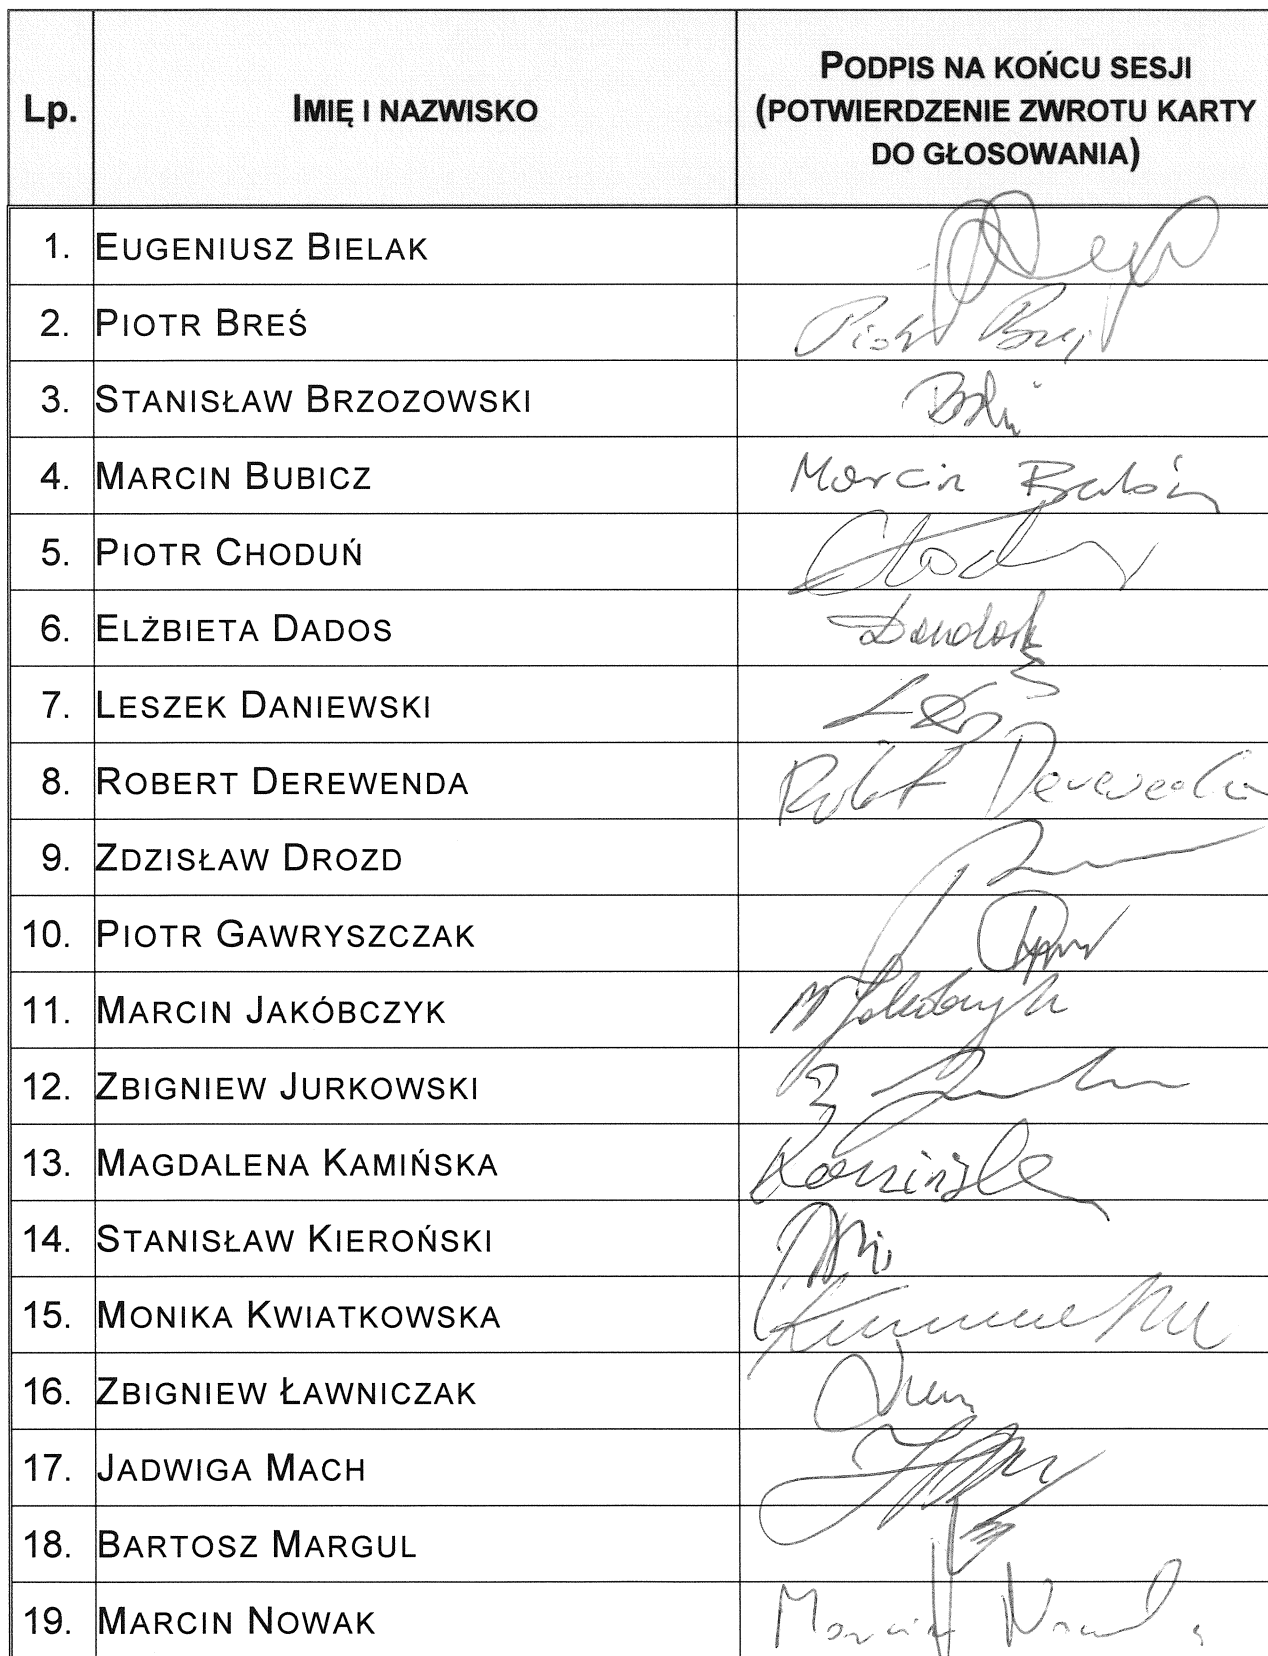 Lp.
IMIĘ I NAZWISKO
PODPIS NA KOŃCU SESJI
(POTWIERDZENIE ZWROTU KARTY
DO GŁOSOWANIA)
1. EUGENIUSZ BIELAK
2. PIOTR BREŚ Piotr
3. STANISŁAW BRZOZOWSKI
4. MARCIN BUBICZ Marcin
5. PIOTR CHODUŃ
6. ELŻBIETA DADOS
7. LESZEK DANIEWSKI
8. ROBERT DEREWENDA Robert Derewenda
9. ZDZISŁAW DROZD
10. PIOTR GAWRYSZCZAK
11. MARCIN JAKÓBCZYK
12. ZBIGNIEW JURKOWSKI
13. MAGDALENA KAMIŃSKA Kamińska
14. STANISŁAW KIEROŃSKI
15. MONIKA KWIATKOWSKA
16. ZBIGNIEW ŁAWNICZAK
17. JADWIGA MACH
18. BARTOSZ MARGUL
19. MARCIN NOWAK Marcin Nowak